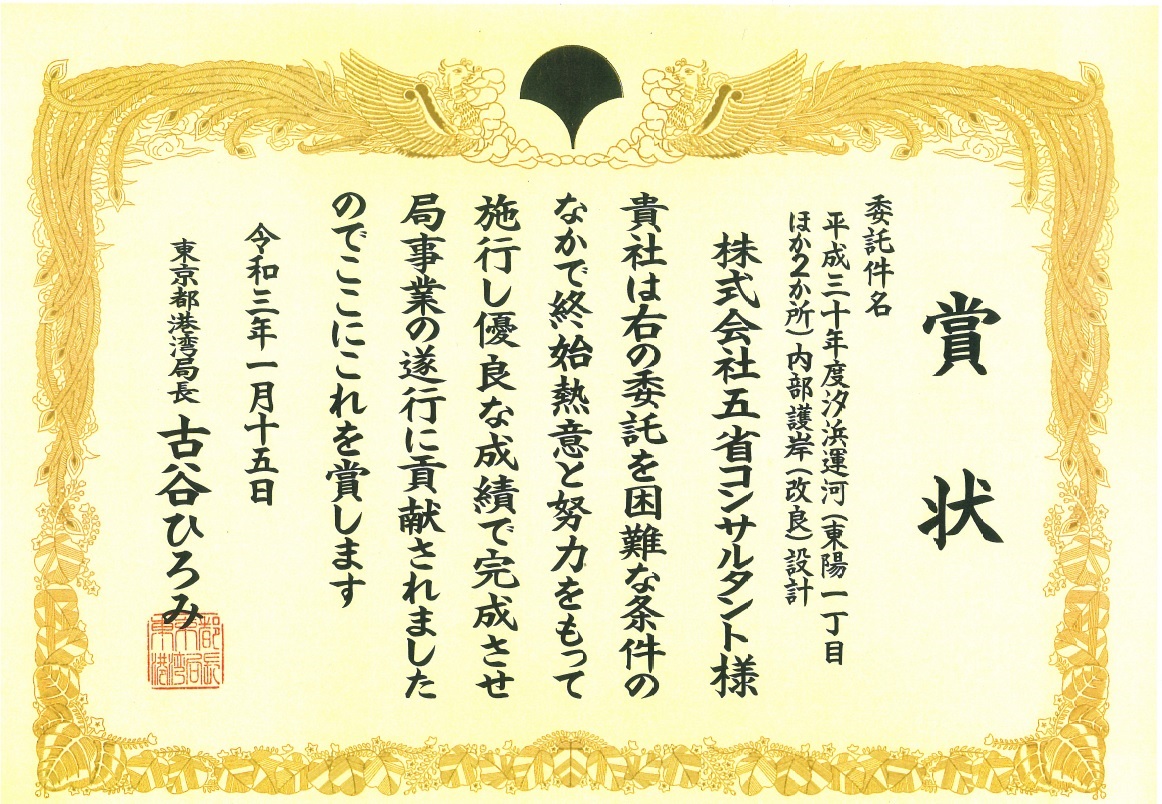 賞状
委託件名
平成三十年度汐浜運河(東陽一丁目
ほか2か所)内部護岸(改良)設計
株式会社五省コンサルタント様
貴社は右の委託を困難な条件の
なかで終始熱意と努力をもって
施行し優良な成績で完成させ
局事業の遂行に貢献されました
のでここにこれを賞します
令和三年一月十五日
東京都港湾局長 古谷ひろみ
東京都
港湾局長